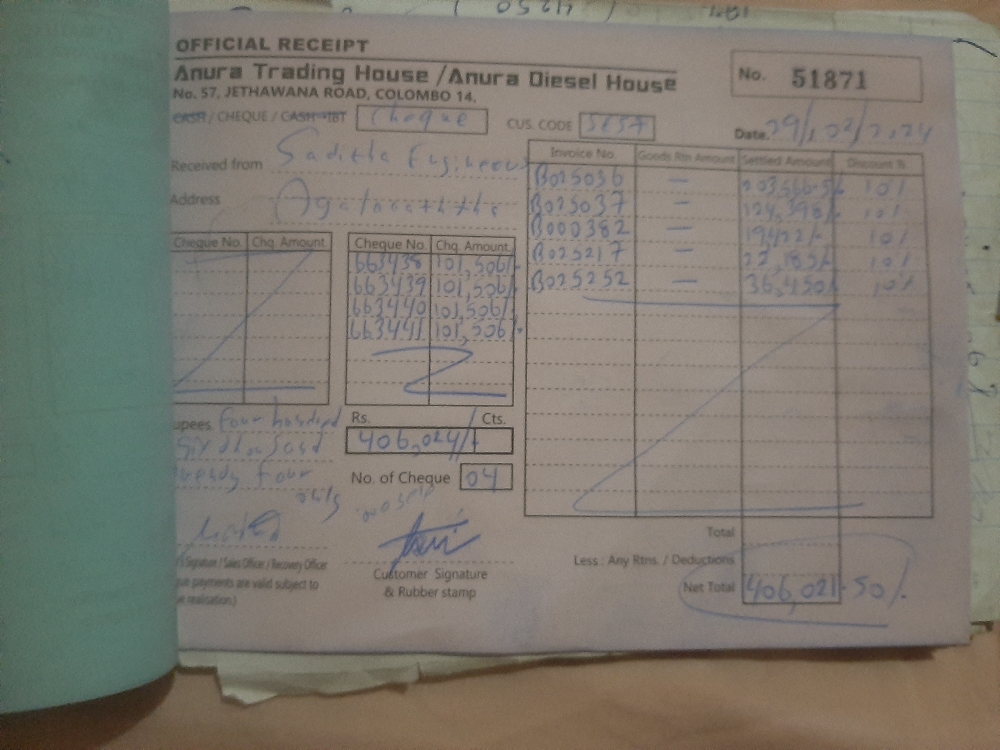 OFFICIAL RECEIPT
Anura Trading House / Anura Diesel House
No. 57, JETHAWANA ROAD, COLOMBO 14.
No. 51871
CASH / CHEQUE / CASH TBT Cheque
CUS. CODE
Date. 29/02/2024
Received from Saditha Engineers
Address
Cheque No. Chq. Amount
Cheque No. Chq. Amount
663438 101,506/-
663439 101,506/-
663440 101,506/-
663441 101,506/-
Invoice No. Goods Rtn Amount Settled Amount Discount %
B025036 — 10%
B025037 — 124,398/- 10%
B000382 — 10%
B025217 — 22,185/- 10%
B025252 — 36,450/- 10%
upees four hundred
six thousand
twenty four
only
Rs. Cts.
406,024/-
No. of Cheque 04
Signature / Sales Office / Recovery Officer
ue payments are valid subject to
e realisation.)
Customer Signature
& Rubber stamp
Total
Less : Any Rtns. / Deductions
Net Total 406,021.50/.